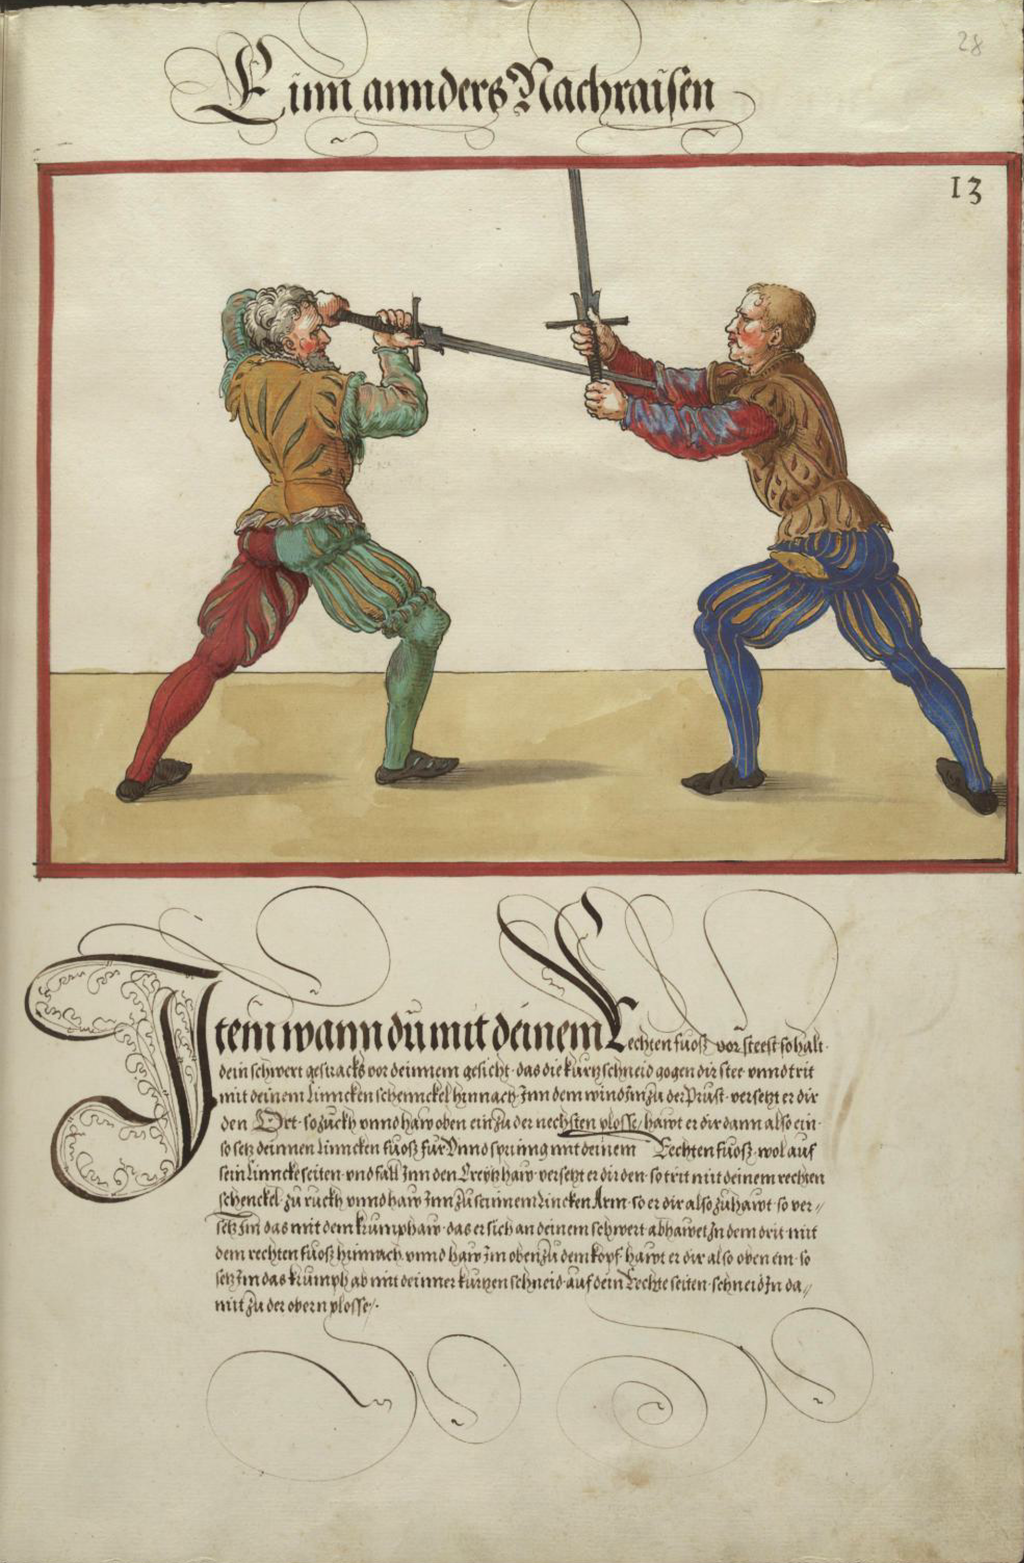 28
Einn annders Nachraisen
13
Item wann du mit deinem Rechten fuoß vor steest so halt
dein schwert gestracks vor deinnem gesicht das die kurtz schneid gogen dir stee vnnd trit
mit deinem Linncken schennckel hinnach Inn dem wind Im zu der Prust versetzt er dir
den Ort so zuckh vnnd haw oben ein zu der nechsten plosse hawt er dir dann also ein
so setz deinnen Lincken fuoß für Vnnd spring mit deinem Rechten fuoß wol auf
sein Linncke seiten vnd fall Inn den Creytzhaw versetzt er dir den so trit mit deinem rechten
schenckel zu ruckh vnnd haw Inn zu seinnem Lincken Arm so er dir also zu hawt so ver //
setz Im das mit dem krumphaw das er sich an deinem schwert abhawet In dem drit mit
dem rechten fuoß hinnach vnnd haw Im oben zu dem kopf hawt er dir also oben ein so
setz Im das krumph ab mit deinner kurtzen schneid auf dein Rechte seiten schneid In da //
mit zu der obern plosse